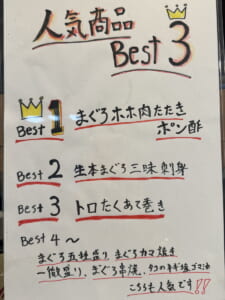 人気商品
Best 3
Best 1 まぐろホホ肉たたき
ポン酢
Best 2 生本まぐろ三味刺身
Best 3 トロたくあて巻き
Best 4 〜
まぐろ五種盛り まぐろカマ焼き
一徹盛り、まぐろ串焼、タコのネギ塩ゴマ油
こちらも人気です!!